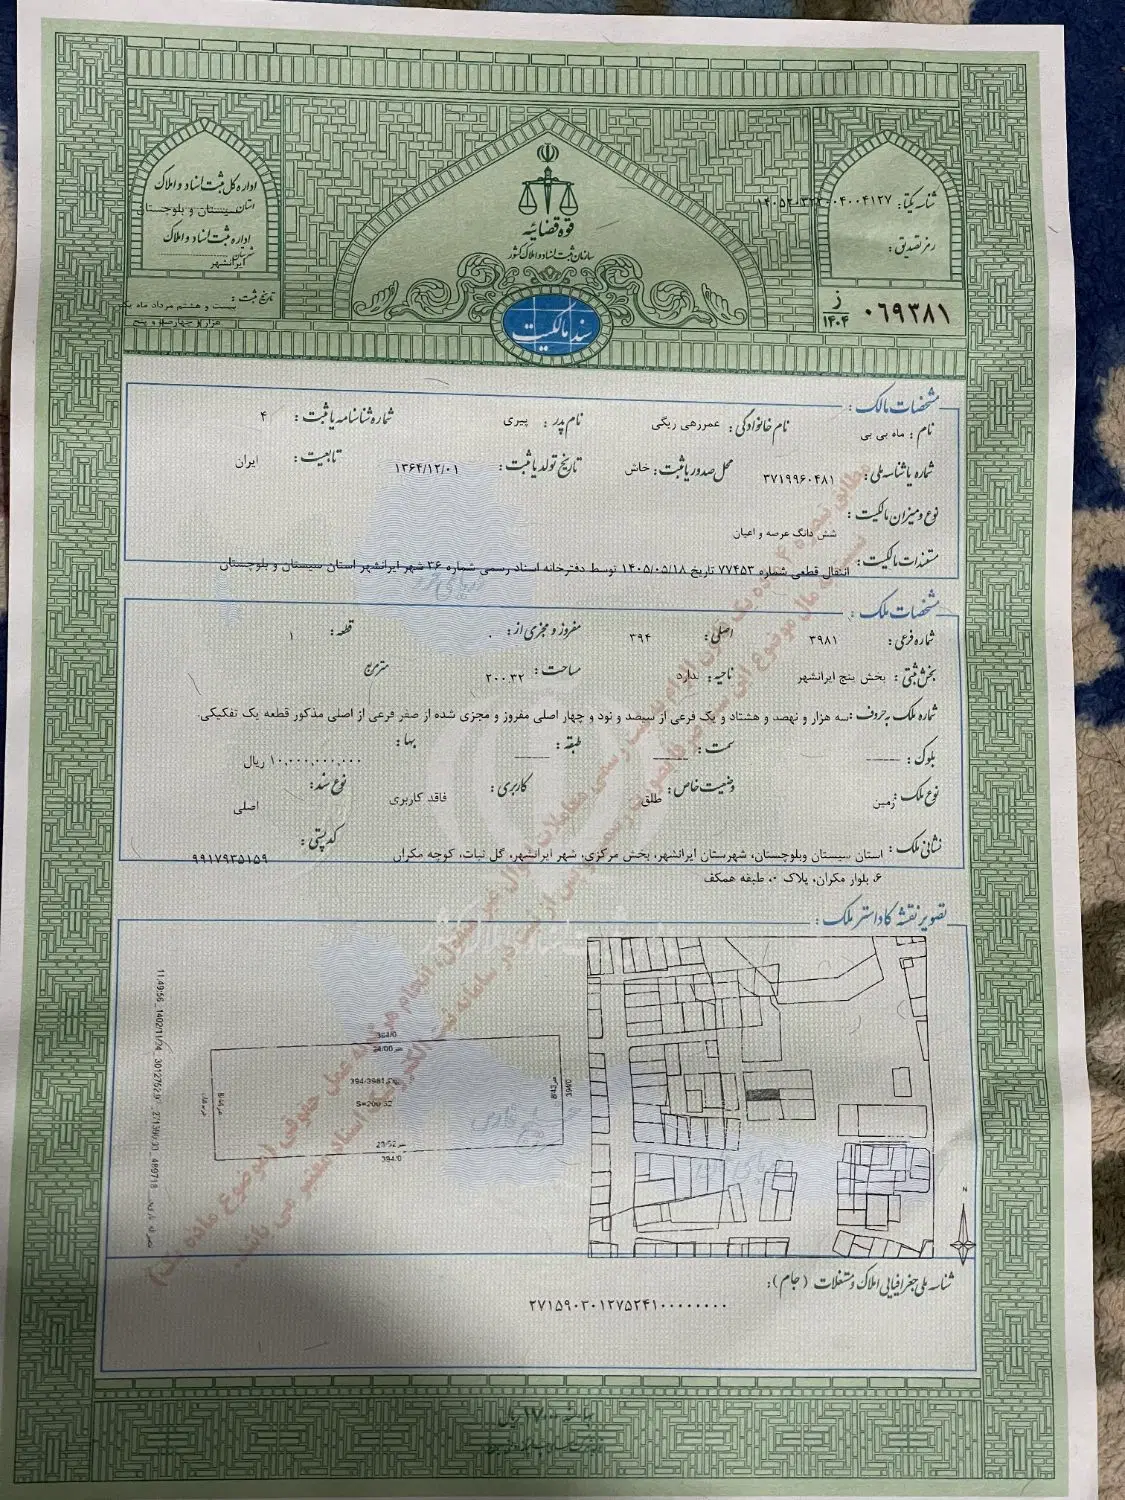 قوه قضائیه
سازمان ثبت اسناد و املاک کشور
سند مالکیت
اداره کل ثبت اسناد و املاک
استان سیستان و بلوچستان
اداره ثبت اسناد و املاک
شهرستان ایرانشهر
تاریخ ثبت :
بیست و هشتم مرداد ماه یک
هزار و چهارصد و پنج
شناسه یکتا:
رمز تصدیق :
ز
۱۴۰۴
۰۶۹۳۸۱
مشخصات مالک :
نام : ماه بی بی نام خانوادگی : عمررهی ریگی نام پدر : پیری شماره شناسنامه یا ثبت : ۴
شماره یا شناسه ملی : ۳۷۱۹۹۶۰۴۸۱ محل صدور یا ثبت : خاش تاریخ تولد یا ثبت : ۱۳۶۴/۱۲/۰۱ تابعیت : ایران
نوع و میزان مالکیت :
شش دانگ عرصه و اعیان
مستندات مالکیت :
انتقال قطعی شماره ۷۷۴۵۳ تاریخ ۱۴۰۵/۰۵/۱۸ توسط دفترخانه اسناد رسمی شماره ۳۶ شهر ایرانشهر استان سیستان و بلوچستان
مشخصات ملک :
شماره فرعی : ۳۹۸۱ اصلی : ۳۹۴ مفروز و مجزی از : ۰ قطعه : ۱
بخش ثبتی : بخش پنج ایرانشهر ناحیه : ندارد مساحت : ۲۰۰.۳۲ مترمربع
شماره ملک به حروف : سه هزار و نهصد و هشتاد و یک فرعی از سیصد و نود و چهار اصلی مفروز و مجزی شده از صفر فرعی از اصلی مذکور قطعه یک تفکیکی.
بلوک : سمت : طبقه : بها : ۱۰,۰۰۰,۰۰۰,۰۰۰ ریال
نوع ملک : زمین وضعیت خاص : طلق کاربری : فاقد کاربری نوع سند : اصلی
نشانی ملک : استان سیستان وبلوچستان، شهرستان ایرانشهر، بخش مرکزی، شهر ایرانشهر، گل نبات، کوچه مکران
۶، بلوار مکران، پلاک ۰، طبقه همکف
کد پستی : ۹۹۱۷۹۳۵۱۵۹
تصویر نقشه کاداستر ملک :
394/0
394/3981
S=200.32
394/0
N
شناسه ملی جغرافیایی املاک و مستغلات (جام):
۲۷۱۵۹۰۳۰۱۲۷۵۲۴۱۰۰۰۰۰۰۰۰